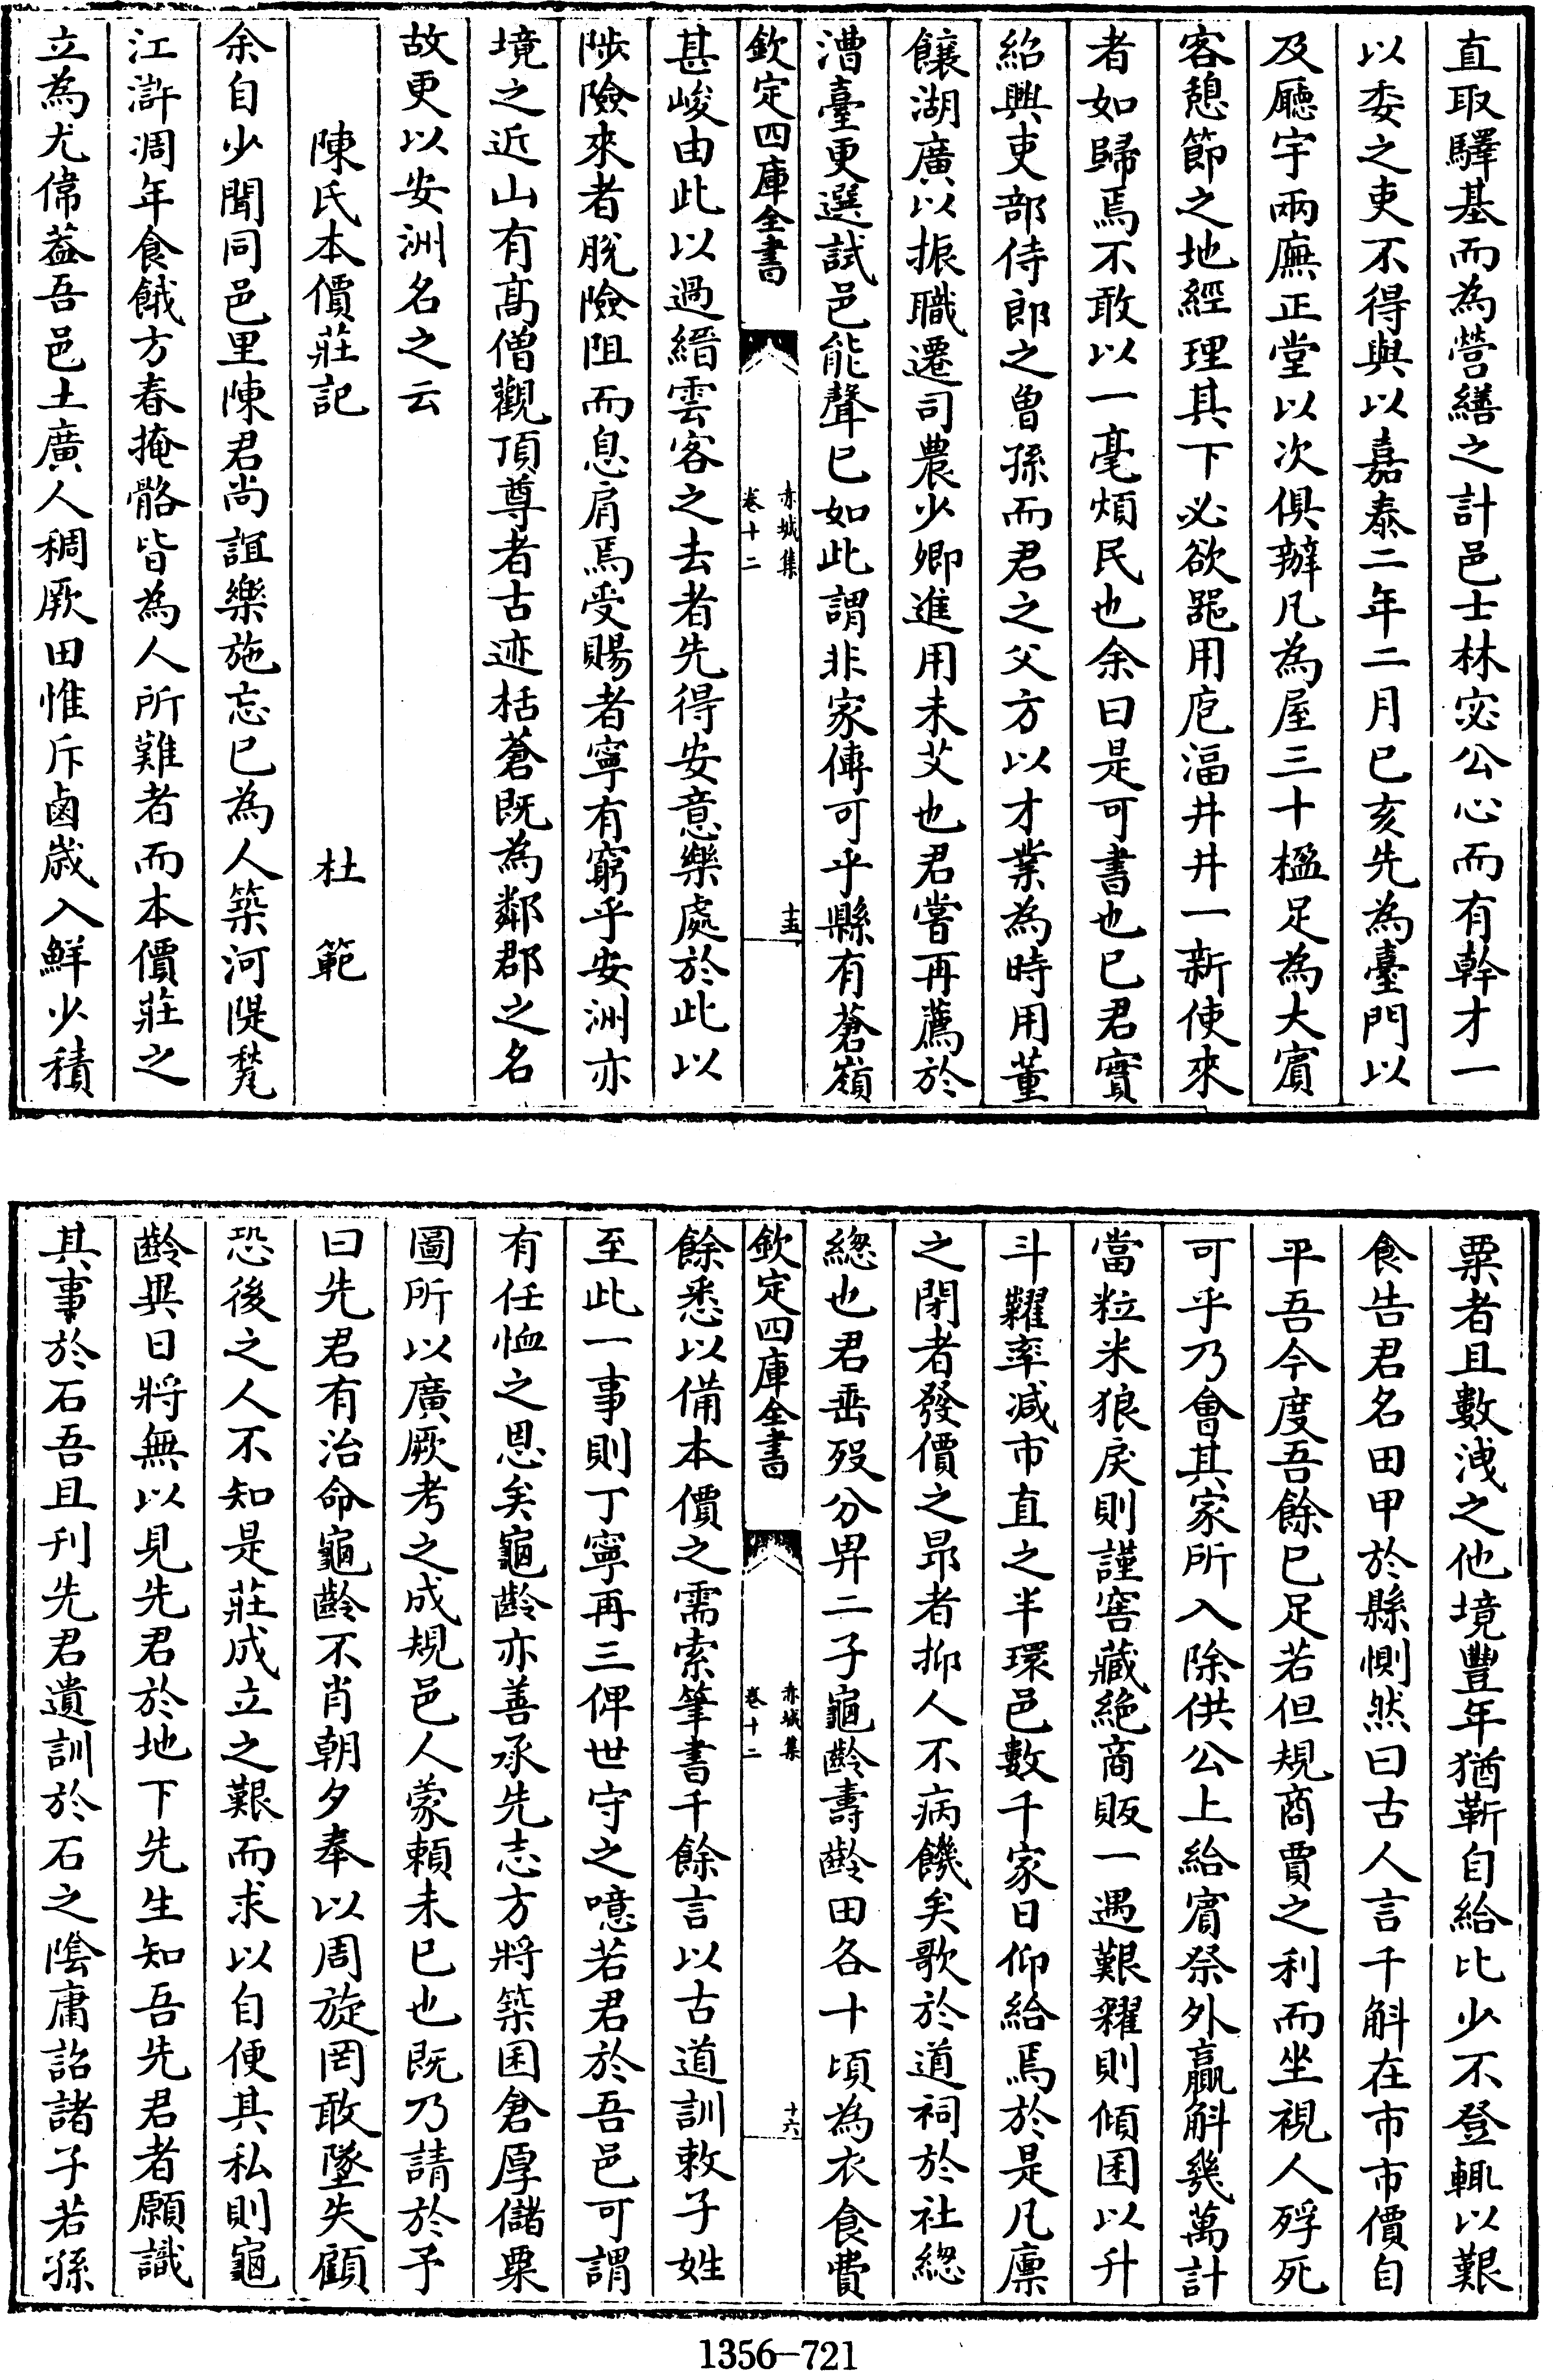 直取驛基而為營繕之計邑士林宓公心而有幹才一
以委之吏不得與以嘉泰二年二月已亥先為臺門以
及廳宇兩廡正堂以次俱辦凡為屋三十楹足為大賓
客憩節之地經理其下必欲噐用庖湢井井一新使來
者如歸焉不敢以一毫煩民也余曰是可書也已君實
紹興吏部侍郎之曽孫而君之父方以才業為時用董
饟湖廣以振職遷司農少卿進用未艾也君嘗再薦於
漕臺更選試邑能聲已如此謂非家傳可乎縣有蒼嶺
欽定四庫全書
赤城集
卷十二
十五
甚峻由此以過縉雲客之去者先得安意樂處於此以
陟險來者脫險阻而息肩焉受賜者寧有窮乎安洲亦
境之近山有高僧觀頂尊者古迹栝蒼既為鄰郡之名
故更以安洲名之云
陳氏本價莊記
杜範
余自少聞同邑里陳君尚誼樂施忘已為人築河隄甃
江滸凋年食餓方春掩骼皆為人所難者而本價莊之
立為尤偉葢吾邑土廣人稠厥田惟斥鹵歲入鮮少積
粟者且數洩之他境豐年猶靳自給比少不登輒以艱
食告君名田甲於縣惻然曰古人言千斛在市市價自
平吾今度吾餘已足若但規商賈之利而坐視人殍死
可乎乃會其家所入除供公上給賓祭外贏斛幾萬計
當粒米狼戾則謹窖藏絶商販一遇艱糴則傾囷以升
斗糶率減市直之半環邑數千家日仰給焉於是凡廩
之閉者發價之昻者抑人不病饑矣歌於道祠於社總
總也君垂歿分畀二子龜齡壽齡田各十頃為衣食費
欽定四庫全書
赤城集
卷十二
十六
餘悉以備本價之需索筆書千餘言以古道訓敕子姓
至此一事則丁寧再三俾世守之噫若君於吾邑可謂
有任恤之恩矣龜齡亦善承先志方將築囷倉厚儲粟
圖所以廣厥考之成規邑人蒙賴未已也既乃請於予
曰先君有治命龜齡不肖朝夕奉以周旋罔敢墜失顧
恐後之人不知是莊成立之艱而求以自便其私則龜
齡異日將無以見先君於地下先生知吾先君者願識
其事於石吾且刋先君遺訓於石之隂庸詔諸子若孫
1356-721